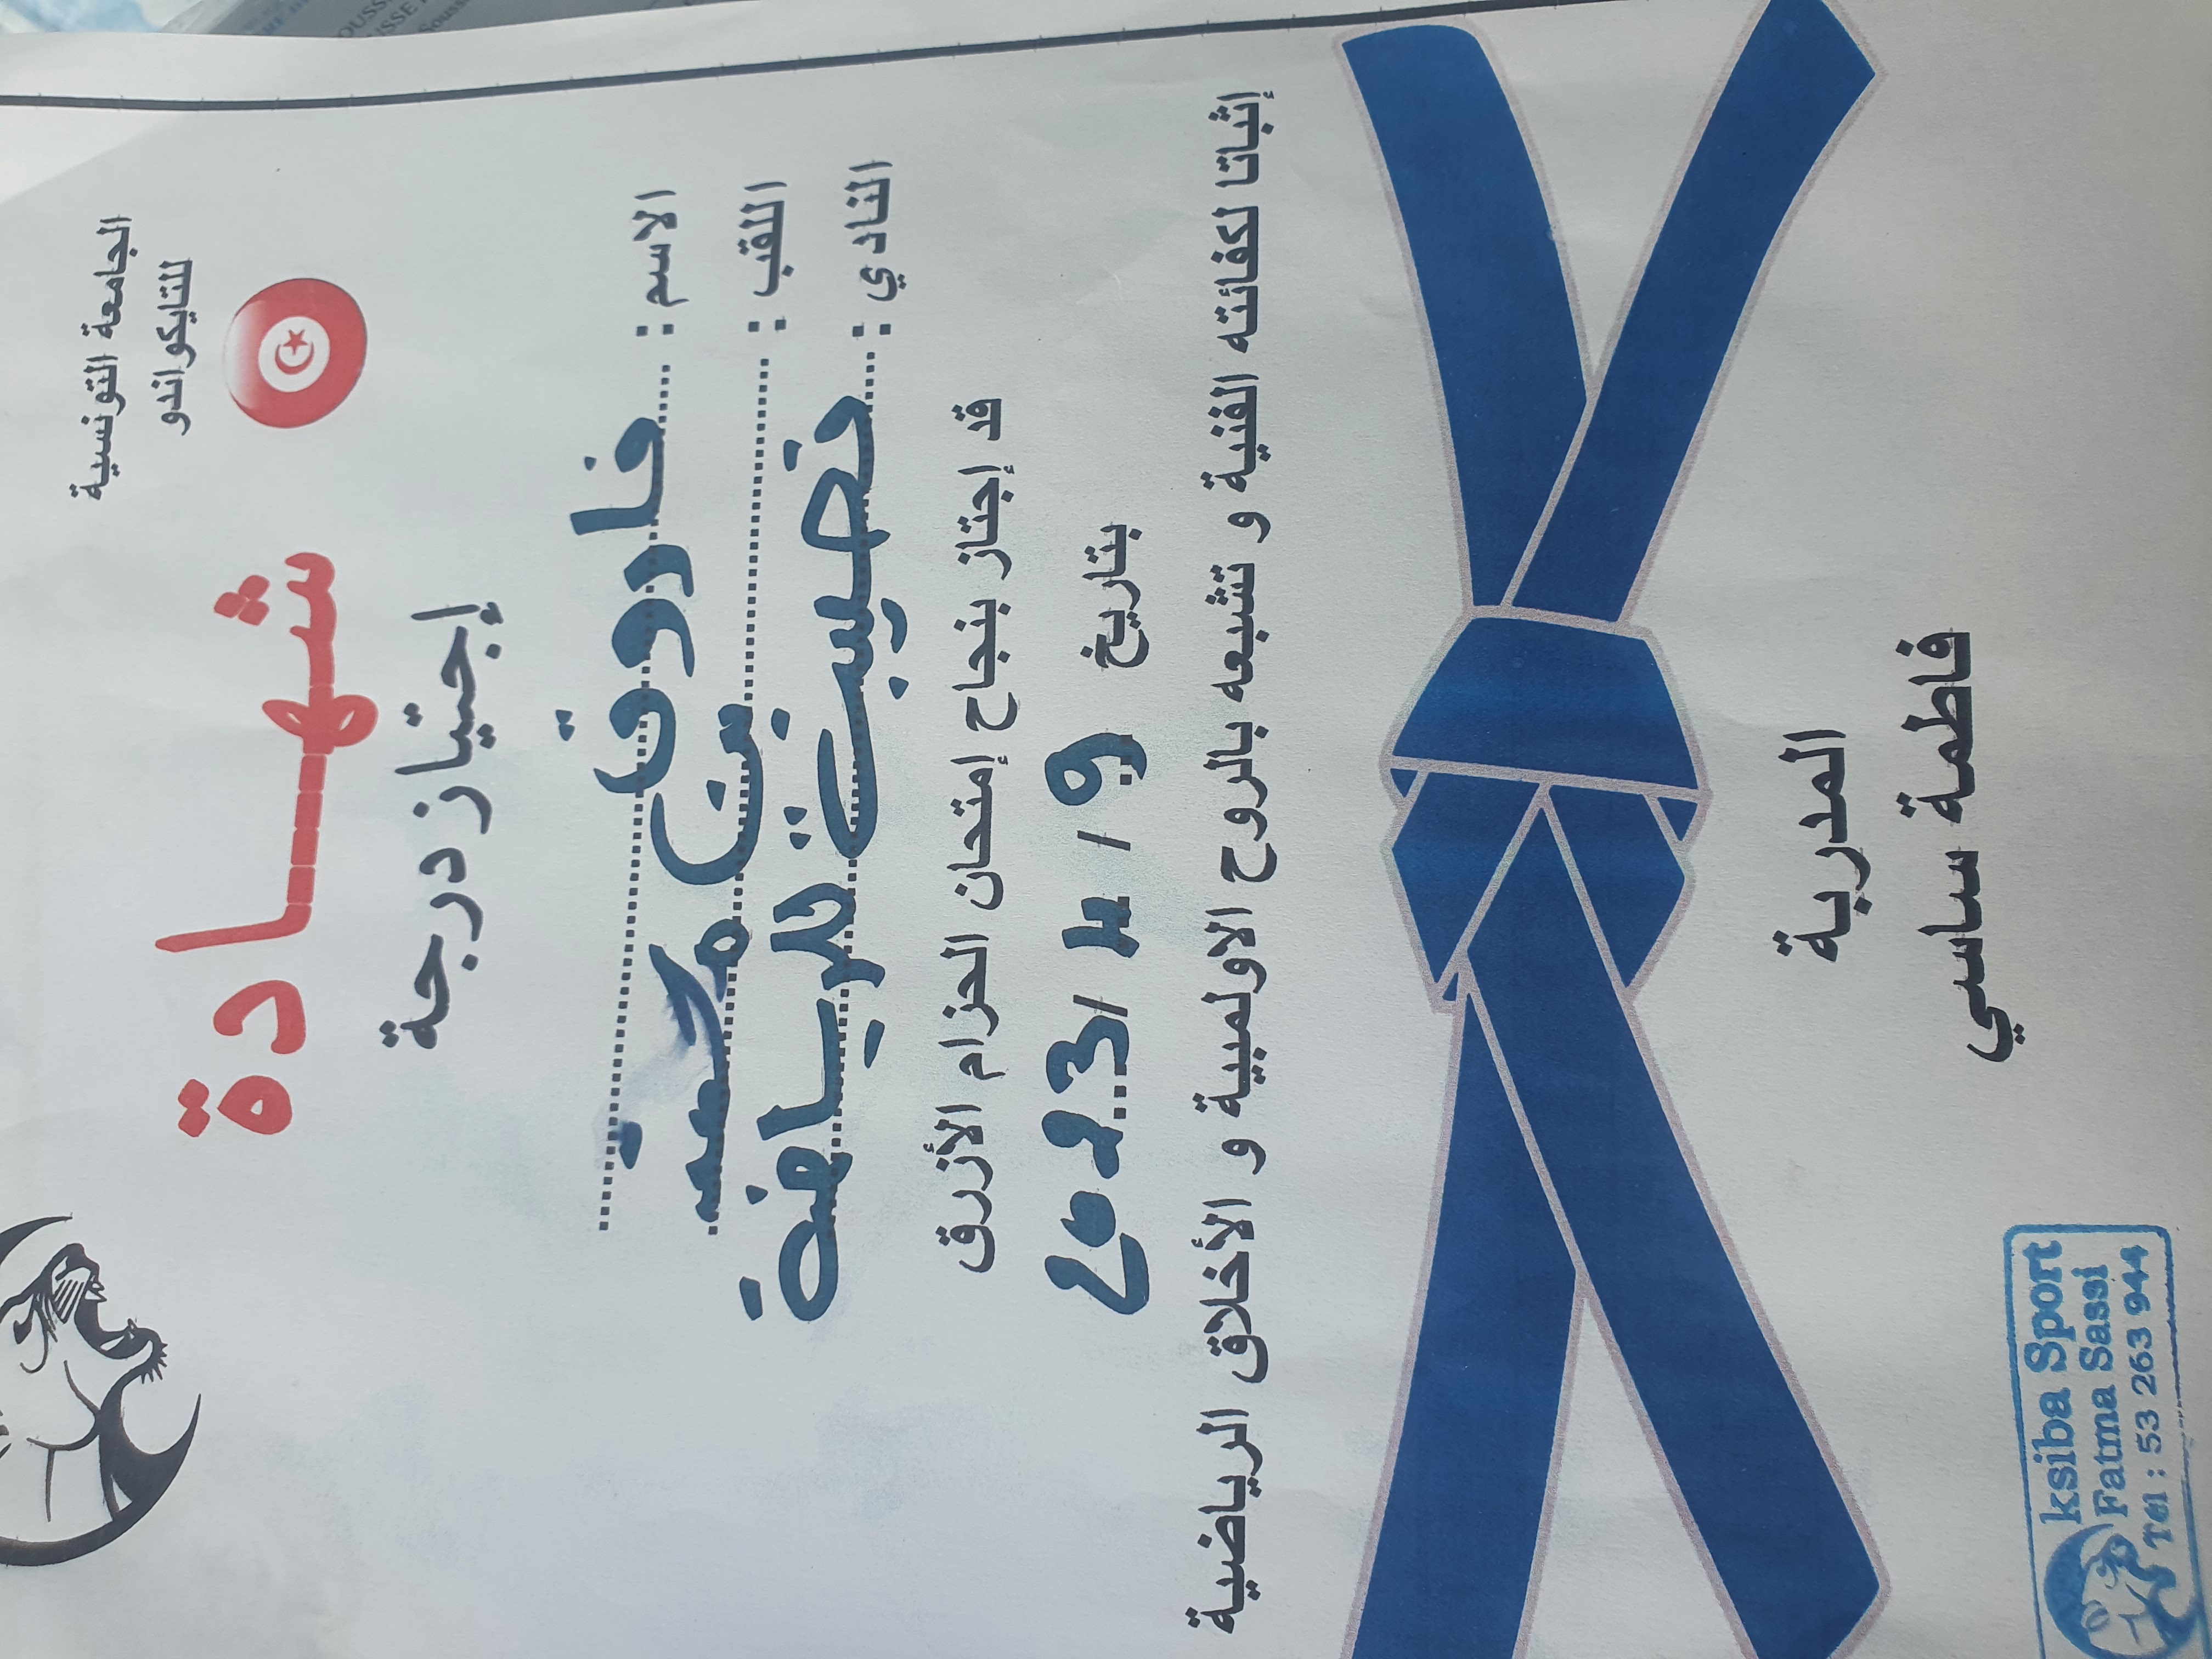 الجامعة التونسية
للتايكواندو
شهادة
إجتياز درجة
الاسم : فاروق
اللقب : بن محمد
النادي : قصيبة للرياضة
قد إجتاز بنجاح إمتحان الحزام الأزرق
بتاريخ 9 / 4 / 2023
إثباتا لكفائته الفنية و تشبعه بالروح الاولمبية و الأخلاق الرياضية
المدربة
فاطمة ساسي
ksiba Sport
Fatma Sassi
Tel : 53 263 944